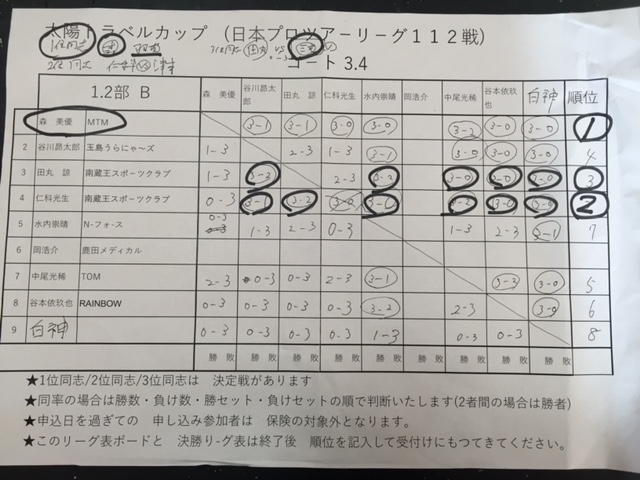 太陽トラベルカップ (日本プロツアーリーグ112戦)
1位同志
2位同士 VS
コート 3.4
1.2部 B 森 美優 谷川昴太郎 田丸 諒 仁科光生 水内崇晴 岡浩介 中尾光稀 谷本依玖也 白神 順位
森 美優 MTM 3-1 3-1 3-0 3-0 3-2 3-0 3-0 1
2 谷川昴太郎 玉島うらにゃ～ズ 1-3 2-3 1-3 3-1 3-0 3-0 3-0 4
3 田丸 諒 南蔵王スポーツクラブ 1-3 3-2 2-3 3-2 3-0 3-0 3-0 3
4 仁科光生 南蔵王スポーツクラブ 0-3 3-1 3-2 3-0 3-2 3-0 3-0 2
5 水内崇晴 N-フォ-ス 0-3 1-3 2-3 0-3 1-3 2-3 3-1 7
6 岡浩介 鹿田メディカル
7 中尾光稀 TOM 2-3 0-3 0-3 2-3 3-1 3-2 3-0 5
8 谷本依玖也 RAINBOW 0-3 0-3 0-3 0-3 3-2 2-3 3-0 6
9 白神 0-3 0-3 0-3 0-3 1-3 0-3 0-3 8
勝 敗 勝 敗 勝 敗 勝 敗 勝 敗 勝 敗 勝 敗 勝 敗 勝 敗
★1位同志/2位同志/3位同志は 決定戦があります
★同率の場合は勝数・負け数・勝セット・負けセットの順で判断いたします(2者間の場合は勝者)
★申込日を過ぎての 申し込み参加者は 保険の対象外となります。
★このリーグ表ボードと 決勝り-グ表は終了後 順位を記入して受付けにもつてきてください。